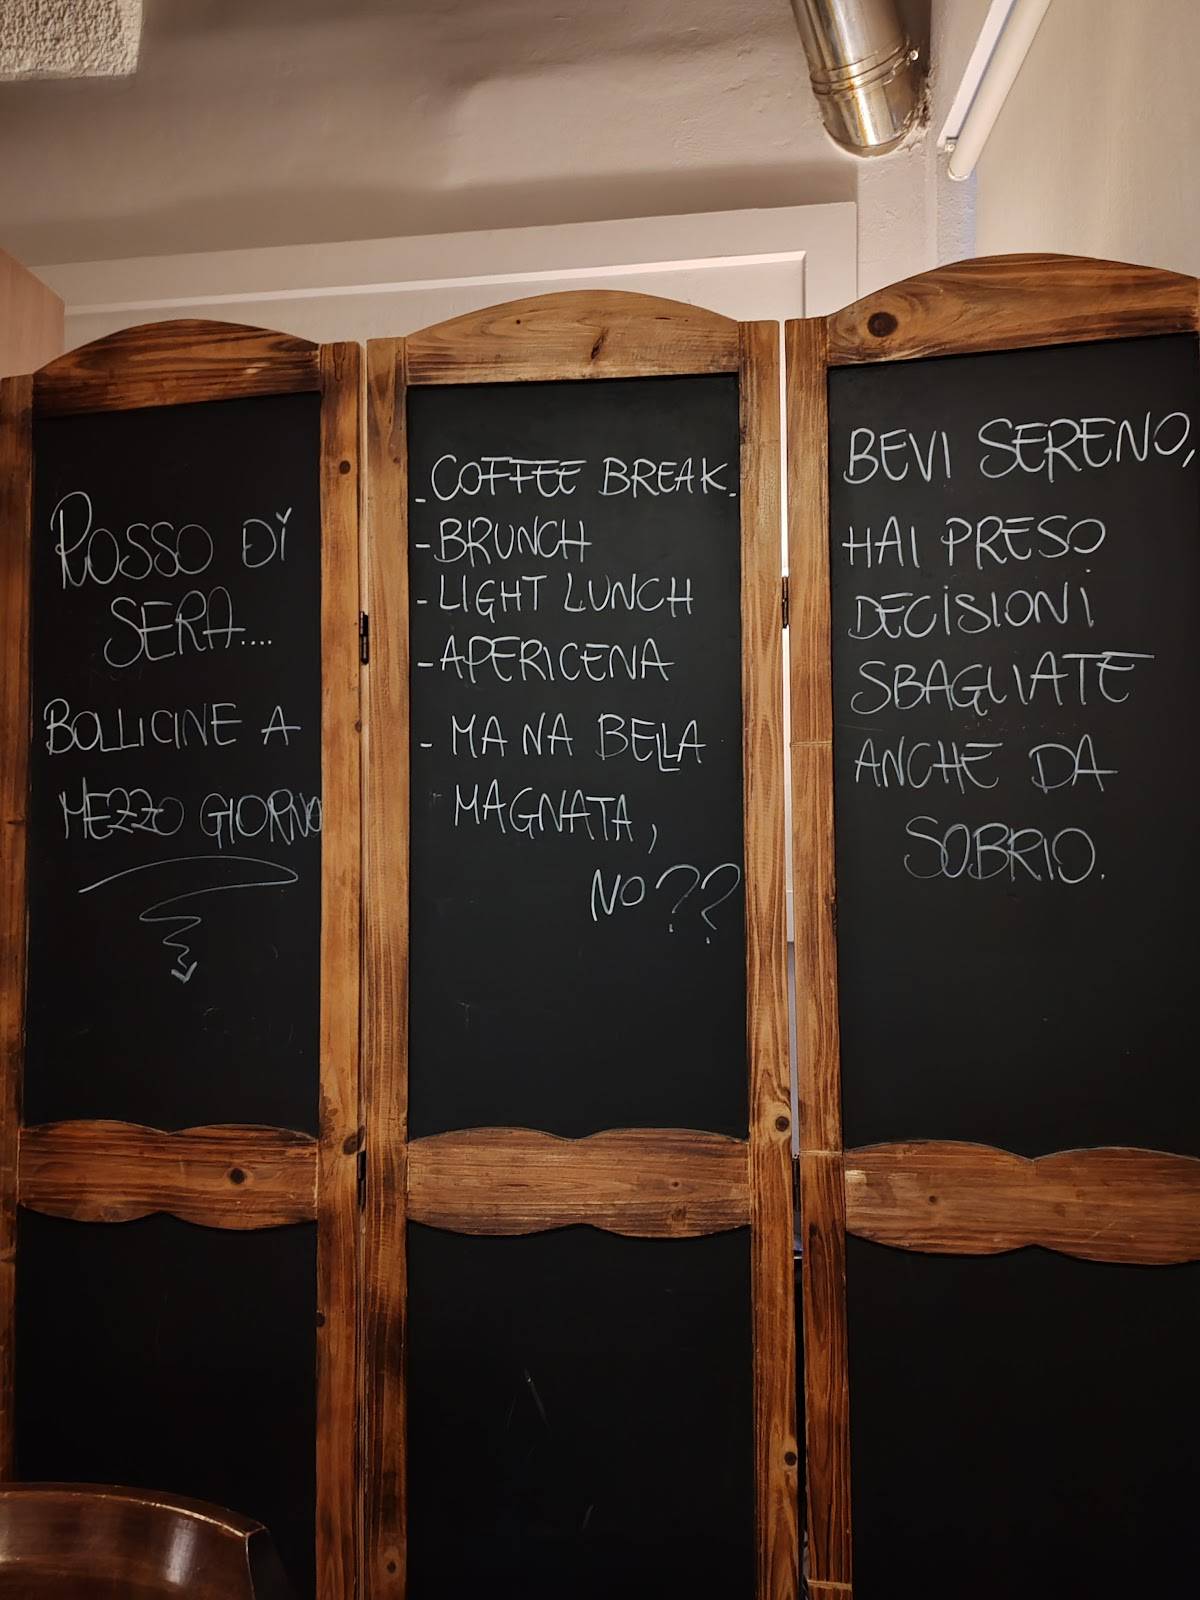 ROSSO DI
SERA....
BOLLICINE A
MEZZO GIORNO
- COFFEE BREAK.
- BRUNCH
- LIGHT LUNCH
- APERICENA
- MA NA BELLA
MAGNATA,
NO??
BEVI SERENO,
HAI PRESO
DECISIONI
SBAGLIATE
ANCHE DA
SOBRIO.